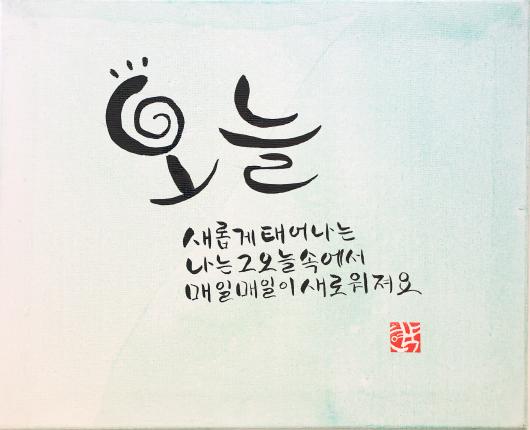 오늘
새롭게 태어나는
나는 그 오늘 속에서
매일매일이 새로워져요